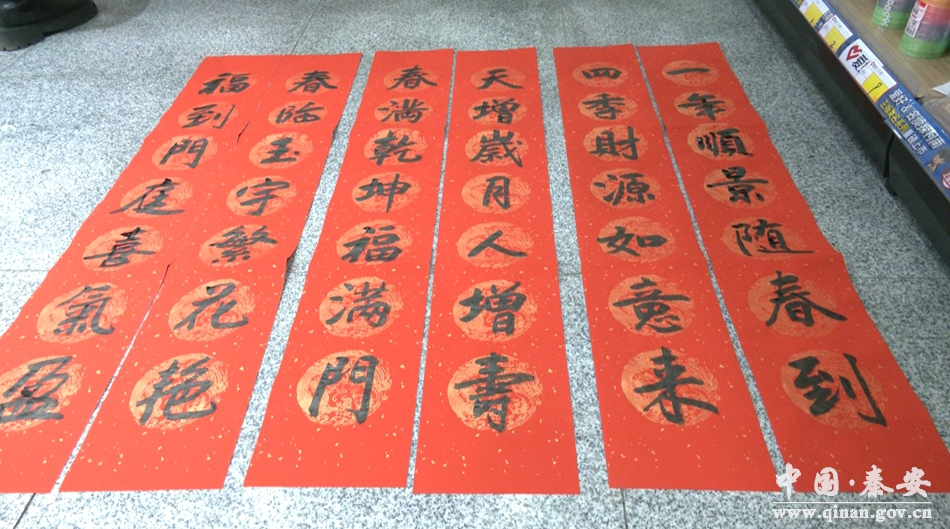 一年順景随春到
四季財源如意来
天增歲月人增壽
春満乾坤福滿門
春臨玉宇繁花艳
福到門庭喜氣盈
中国·秦安
www.qinan.gov.cn